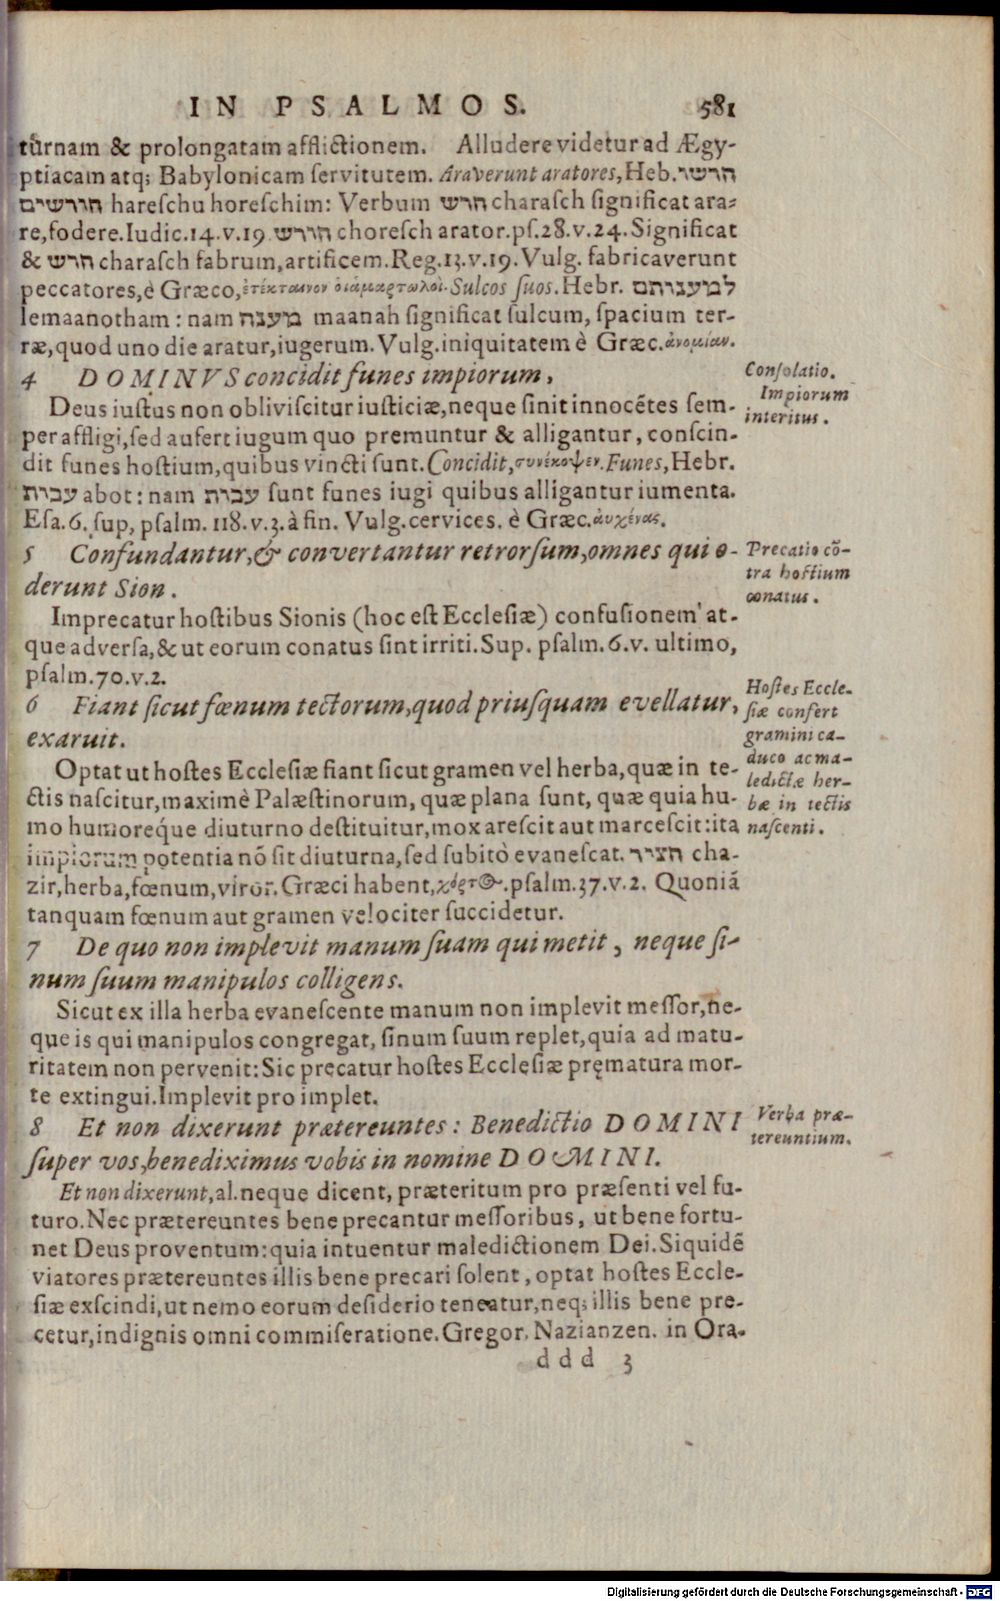 IN PSALMOS. 581
turnam & prolongatam afflictionem. Alludere videtur ad Ægy-
ptiacam atq; Babylonicam ſervitutem. Araverunt aratores, Heb. חרשו
חורשים hareſchu horeſchim: Verbum חרש charaſch ſignificat ara-
re, fodere. Iudic. 14. v. 19 חורש choreſch arator. pſ. 28. v. 24. Significat
& חרש charaſch fabrum, artificem. Reg. 13. v. 19. Vulg. fabricaverunt
peccatores, è Græco, ἐτέκταινον οἱ ἁμαρτωλοὶ. Sulcos ſuos. Hebr. למענותם
lemaanotham: nam מענה maanah ſignificat ſulcum, ſpacium ter-
ræ, quod uno die aratur, iugerum. Vulg. iniquitatem è Græc. ἀνομίαν.
4 DOMINVS concidit funes impiorum,
Conſolatio.
Impiorum
interitus.
Deus iuſtus non obliviſcitur iuſticiæ, neque ſinit innocẽtes ſem-
per affligi, ſed aufert iugum quo premuntur & alligantur, conſcin-
dit funes hoſtium, quibus vincti ſunt. Concidit, συνέκοψεν. Funes, Hebr.
עבות abot: nam עבות ſunt funes iugi quibus alligantur iumenta.
Eſa. 6. ſup, pſalm. 118. v. 3. à fin. Vulg. cervices. è Græc. ἀυχένας.
5 Confundantur, & convertantur retrorſum, omnes qui o-
derunt Sion.
Precatio cõ-
tra hoſtium
conatus.
Imprecatur hoſtibus Sionis (hoc eſt Eccleſiæ) confuſionem at-
que adverſa, & ut eorum conatus ſint irriti. Sup. pſalm. 6. v. ultimo,
pſalm. 70. v. 2.
6 Fiant ſicut fœnum tectorum, quod priuſquam evellatur,
exaruit.
Hoſtes Eccle-
ſiæ confert
gramini ca-
duco ac ma-
ledictæ her-
bæ in tectis
naſcenti.
Optat ut hoſtes Eccleſiæ fiant ſicut gramen vel herba, quæ in te-
ctis naſcitur, maximè Palæſtinorum, quæ plana ſunt, quæ quia hu-
mo humoreq́ue diuturno deſtituitur, mox areſcit aut marceſcit: ita
impiorum potentia nõ ſit diuturna, ſed ſubitò evaneſcat. חציר cha-
zir, herba, fœnum, viror. Græci habent, χόρτος. pſalm. 37. v. 2. Quoniã
tanquam fœnum aut gramen velociter ſuccidetur.
7 De quo non implevit manum ſuam qui metit, neque ſi-
num ſuum manipulos colligens.
Sicut ex illa herba evaneſcente manum non implevit meſſor, ne-
que is qui manipulos congregat, ſinum ſuum replet, quia ad matu-
ritatem non pervenit: Sic precatur hoſtes Eccleſiæ pręmatura mor-
te extingui. Implevit pro implet.
8 Et non dixerunt prætereuntes: Benedictio DOMINI
ſuper vos, benediximus vobis in nomine DOMINI.
Verba præ-
tereuntium.
Et non dixerunt, al. neque dicent, præteritum pro præſenti vel fu-
turo. Nec prætereuntes bene precantur meſſoribus, ut bene fortu-
net Deus proventum: quia intuentur maledictionem Dei. Siquidẽ
viatores prætereuntes illis bene precari ſolent, optat hoſtes Eccle-
ſiæ exſcindi, ut nemo eorum deſiderio teneatur, neq; illis bene pre-
cetur, indignis omni commiſeratione. Gregor. Nazianzen. in Ora-
ddd 3
Digitalisierung gefördert durch die Deutsche Forschungsgemeinschaft - DFG